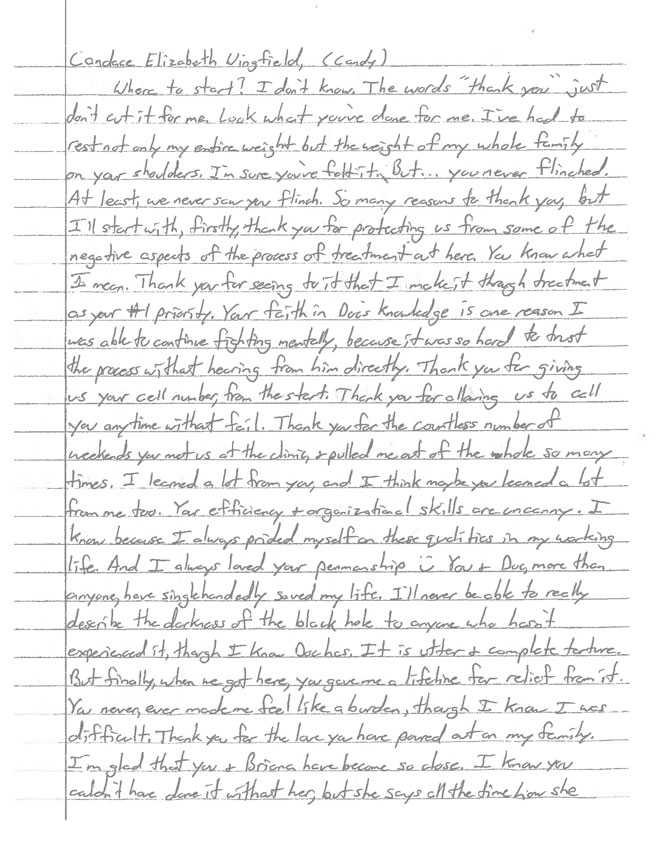 Candace Elizabeth Wingfield, (Candy)
Where to start? I don't know. The words "thank you" just
don't cut it for me. Look what you've done for me. I've had to
rest not only my entire weight but the weight of my whole family
on your shoulders. I'm sure you've felt it. But... you never flinched.
At least, we never saw you flinch. So many reasons to thank you, but
I'll start with, firstly, thank you for protecting us from some of the
negative aspects of the process of treatment out here. You know what
I mean. Thank you for seeing to it that I make it through treatment
as your #1 priority. Your faith in Doc's knowledge is one reason I
was able to continue fighting mentally, because it was so hard to trust
the process without hearing from him directly. Thank you for giving
us your cell number, from the start. Thank you for allowing us to call
you anytime without fail. Thank you for the countless number of
weekends you met us at the clinic, + pulled me out of the whole so many
times. I learned a lot from you, and I think maybe you learned a lot
from me too. Your efficiency + organizational skills are uncanny. I
know because I always prided myself on these qualities in my working
life. And I always loved your penmanship ☺ You + Doc, more than
anyone, have singlehandedly saved my life. I'll never be able to really
describe the darkness of the black hole to anyone who hasn't
experienced it, though I know Doc has. It is utter + complete torture.
But finally, when we got here, you gave me a lifeline for relief from it.
You never, ever made me feel like a burden, though I know I was
difficult. Thank you for the love you have poured out on my family.
I'm glad that you + Briana have become so close. I know you
couldn't have done it without her, but she says all the time how she